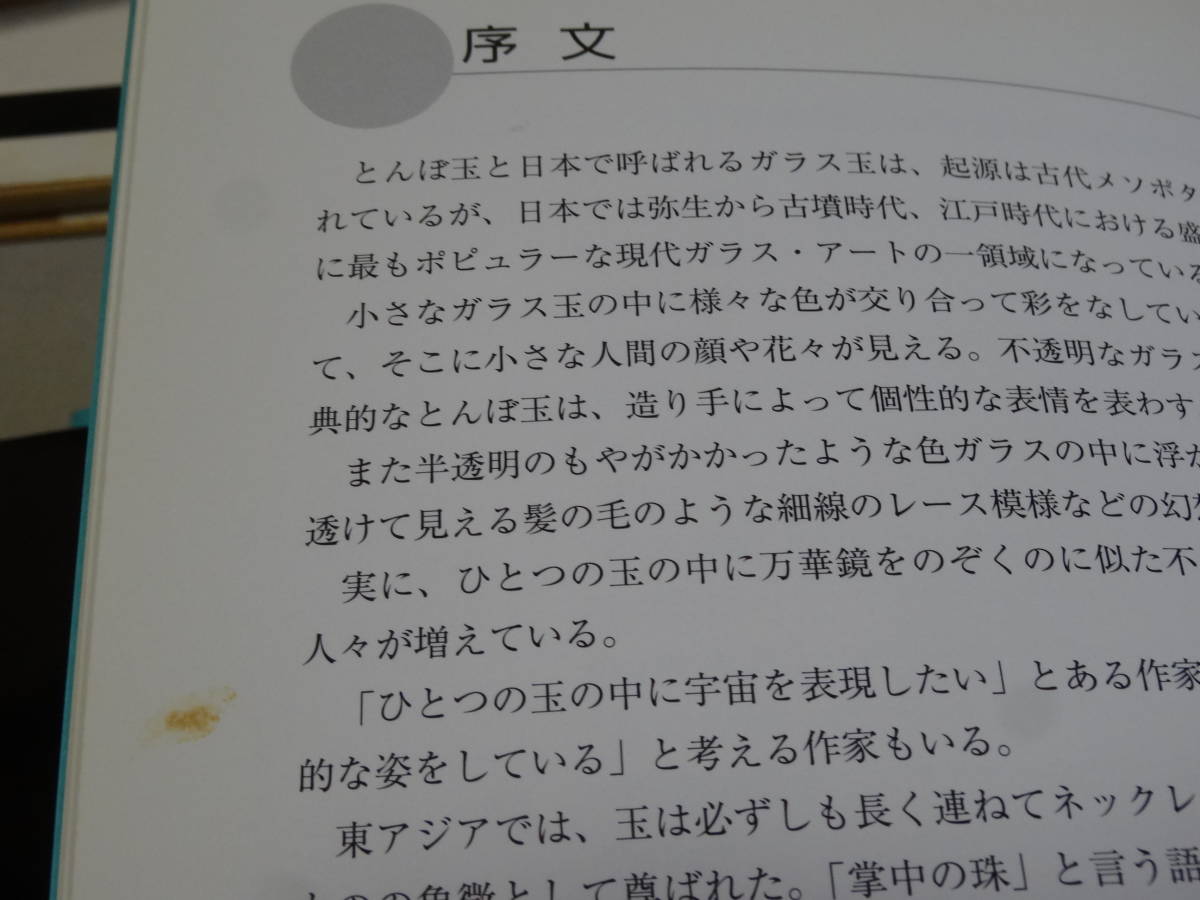 序文
とんぼ玉と日本で呼ばれるガラス玉は、起源は古代メソポタ
れているが、日本では弥生から古墳時代、江戸時代における盛
に最もポピュラーな現代ガラス・アートの一領域になっている
小さなガラス玉の中に様々な色が交り合って彩をなしてい
て、そこに小さな人間の顔や花々が見える。不透明なガラス
典的なとんぼ玉は、造り手によって個性的な表情を表わす
また半透明のもやがかかったような色ガラスの中に浮か
透けて見える髪の毛のような細線のレース模様などの幻想
実に、ひとつの玉の中に万華鏡をのぞくのに似た不
人々が増えている。
「ひとつの玉の中に宇宙を表現したい」とある作家
的な姿をしている」と考える作家もいる。
東アジアでは、玉は必ずしも長く連ねてネックレ
ものの象徴として尊ばれた。「掌中の珠」と言う語